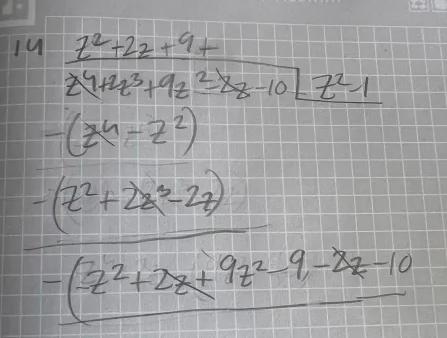 14 z²+2z+9+
z⁴+2z³+9z²-2z-10 z²-1
-(z⁴-z²)
-(z²+2z³-2z)
-(-z²+2z+9z²-9,-2z-10